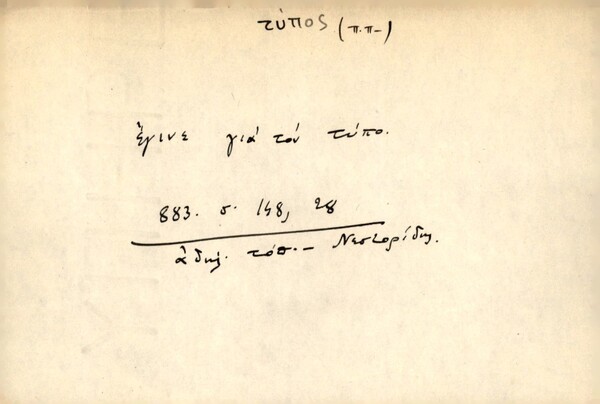 τύπος (π.π–)
ἔγινε γιά τόν τύπο.
883. σ. 148, 28
ἀδήλ. τόπ. – Νεστορίδης.